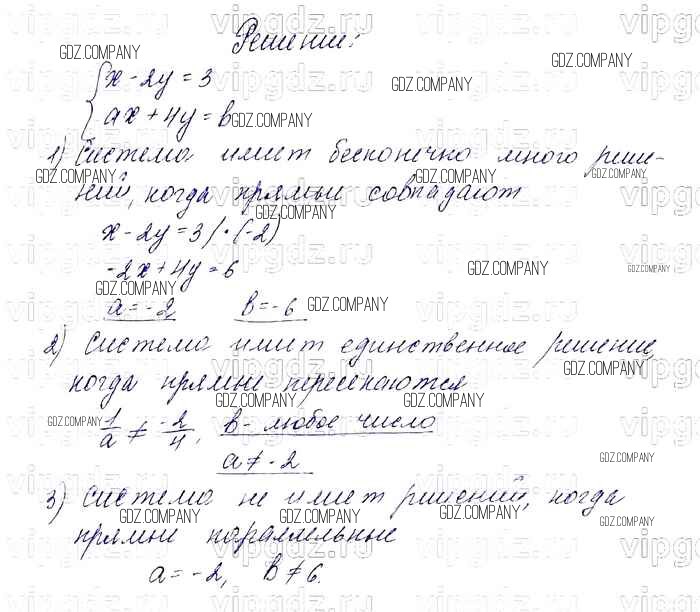 Решение:
{x - 2y = 3
ax + 4y = b
1) Система имеет бесконечно много реше-
ний, когда прямые совпадают
x - 2y = 3 | · (-2)
-2x + 4y = 6
a = -2, b = -6
2) система имеет единственное решение,
когда прямые пересекаются
1/a ≠ -2/4, b - любое число
a ≠ -2
3) система не имеет решений, когда
прямые параллельные
a = -2, b ≠ 6.
GDZ.COMPANY
vipgdz.ru